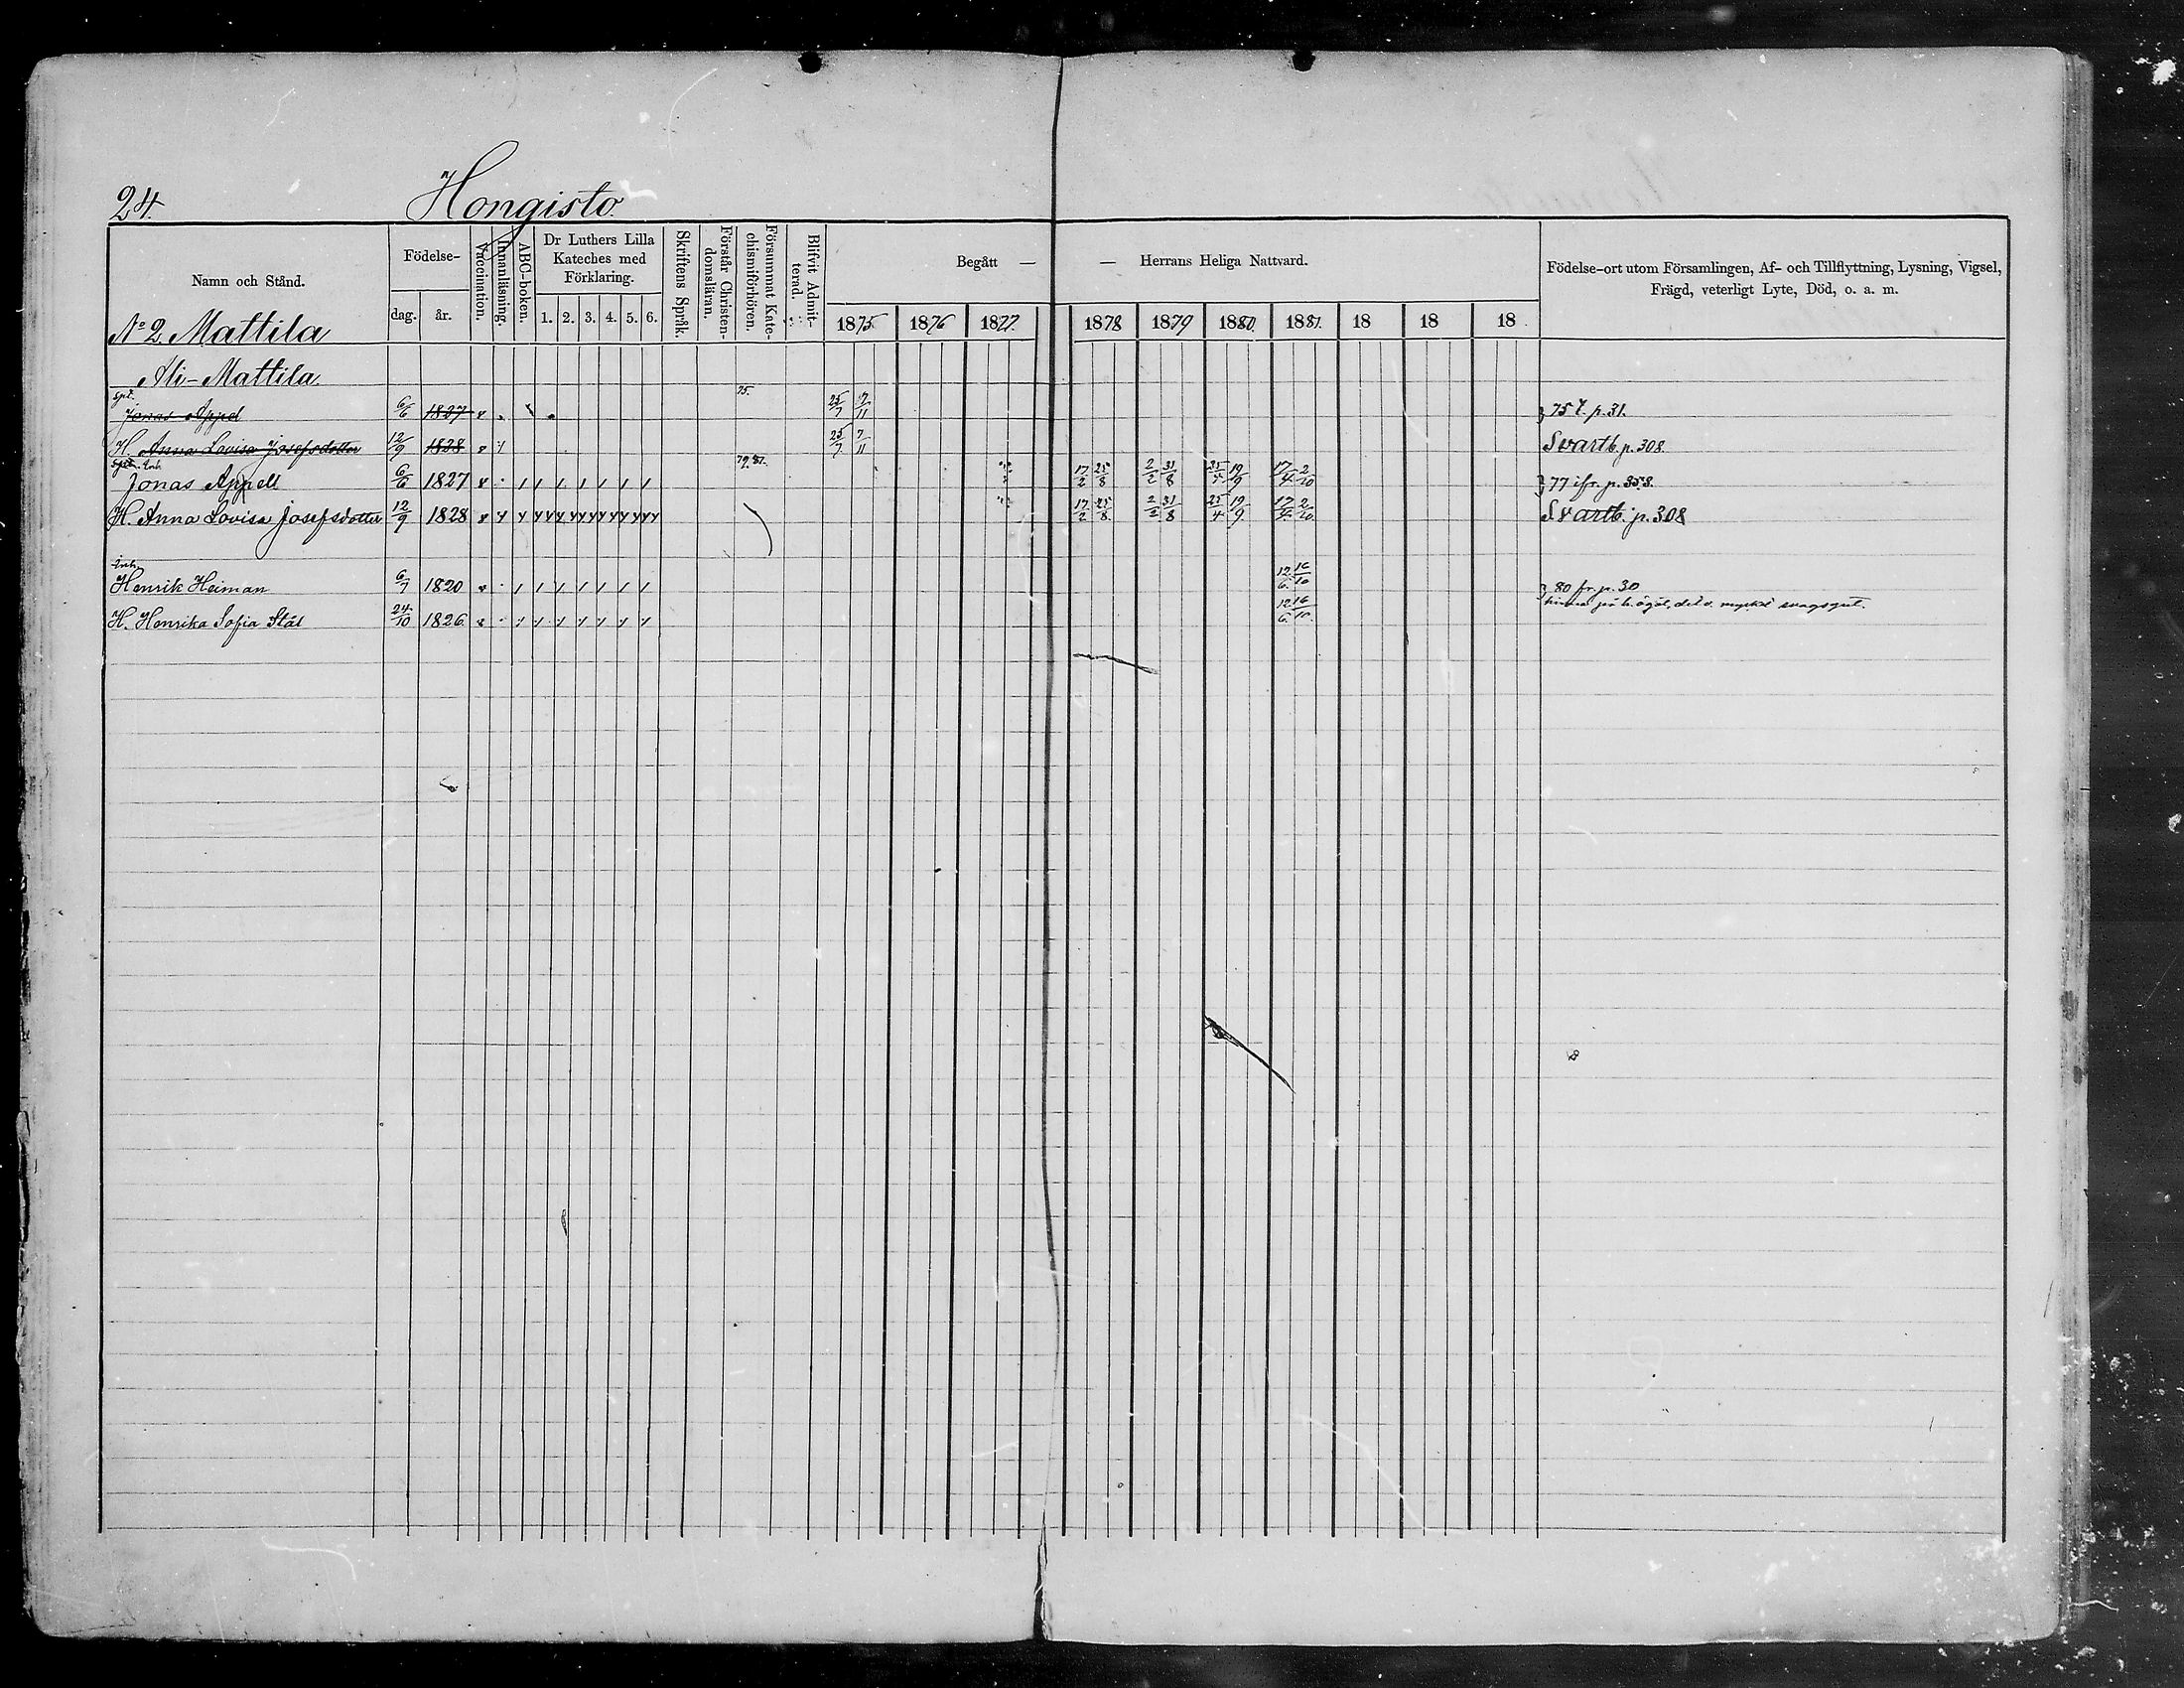 24. Hongisto
Namn och Stånd. Födelse- dag. år. Vaccination. Innanläsning. ABC-boken. Dr Luthers Lilla Kateches med Förklaring. 1. 2. 3. 4. 5. 6. Skriftens Språk. Förstår Christen-domsläran. Försummat Kate-chismiförhören. Blifvit Admit-terad. Begått — — Herrans Heliga Nattvard. Födelse-ort utom Församlingen, Af- och Tillflyttning, Lysning, Vigsel, Frägd, veterligt Lyte, Död, o. a. m.
1875 1876 1877 1878 1879 1880 1881. 18 18 18
No 2 Mattila
Ali-Mattila
Jonas Appel 6/6 1827 75. 25/7 7/11 75 t. p. 31.
H. Anna Lovisa Josefsdotter 12/9 1828 25/7 7/11 Svartb. p. 308.
Jonas Appell 6/6 1827 79.81. 17/2 25/8 2/2 31/8 19/9 17/4 2/10 77 ifr. p. 358.
H. Anna Lovisa Josefsdotter 12/9 1828 17/2 25/8 2/2 31/8 25/4 19/9 17/4 2/10 Svartb. p. 308
Inh.
Henrik Heiman 6/7 1820 12/6 16/10 80 fr. p. 30
H. Henrika Sofia Stål 24/10 1826 12/6 16/10